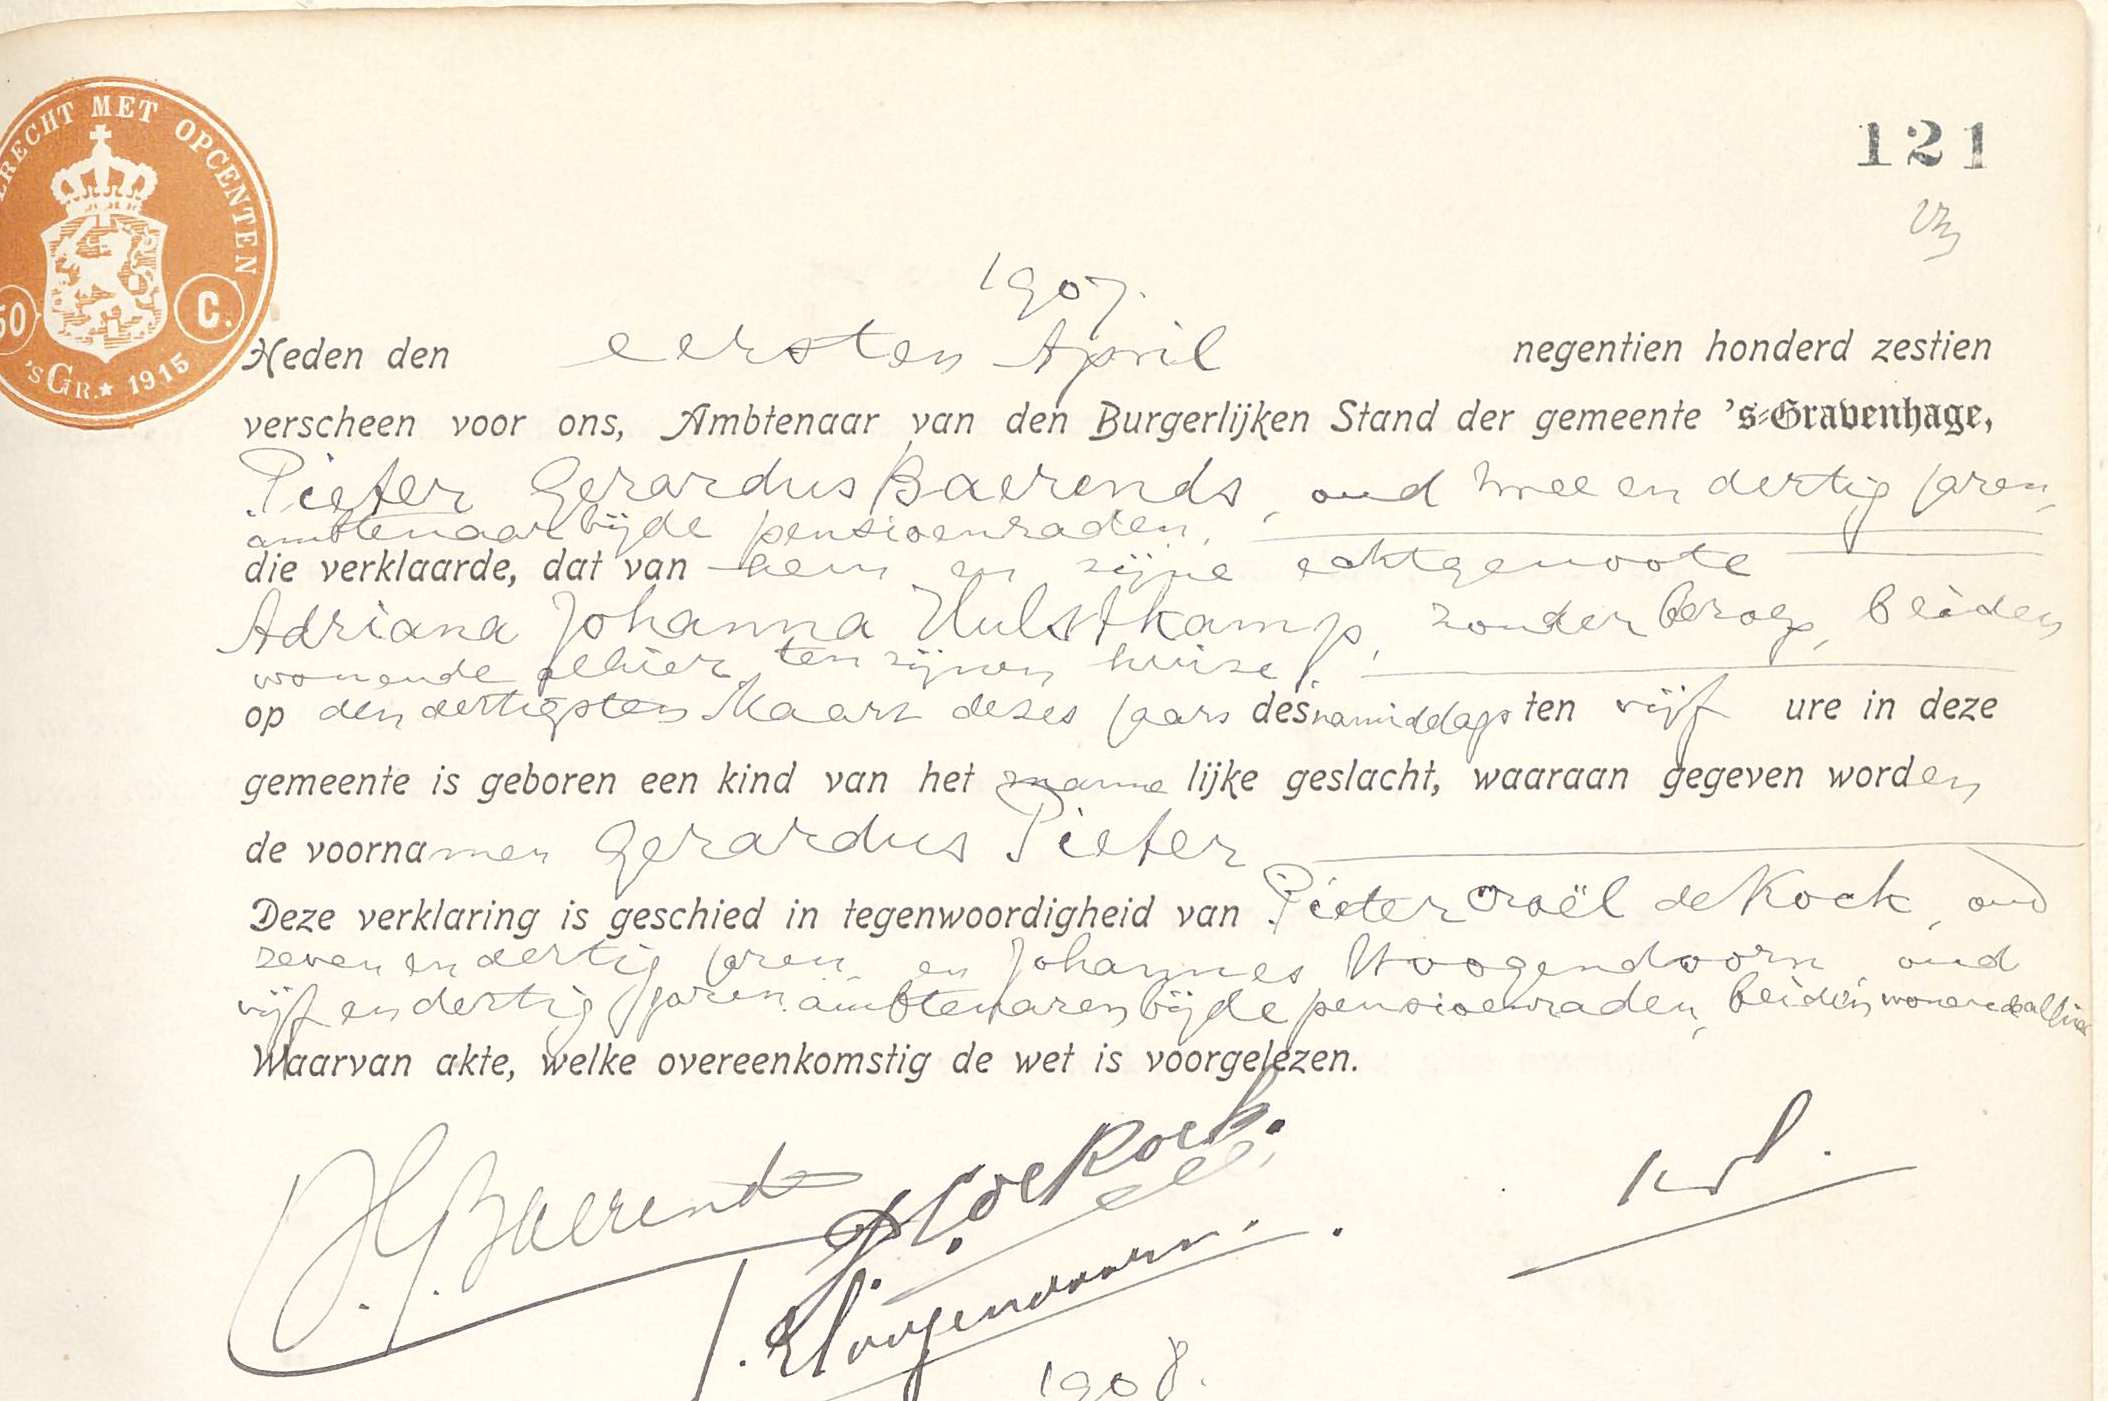 RECHT MET OPCENTEN
50 C.
'sGR.★1915
121
1907.
Heden den eersten April negentien honderd zestien
verscheen voor ons, Ambtenaar van den Burgerlijken Stand der gemeente 's-Gravenhage,
Pieter Gerardus Baerends, oud twee en dertig jaren,
ambtenaar bij de pensioenraden,
die verklaarde, dat van hem en zijne echtgenoote
Adriana Johanna Hulstkamp, zonder beroep, beiden
wonende alhier ten zijnen huize,
op den dertigsten Maart dezes jaars des namiddags ten vijf ure in deze
gemeente is geboren een kind van het manne lijke geslacht, waaraan gegeven worden
de voornamen Gerardus Pieter
Deze verklaring is geschied in tegenwoordigheid van Pieter de Kock, oud
zeven en dertig jaren en Johannes Hoogendoorn, oud
vijf en dertig jaren, ambtenaren bij de pensioenraden, beiden wonende alhier
Waarvan akte, welke overeenkomstig de wet is voorgelezen.
P.G. Baerends
de Kock.
J. Hoogendoorn.
1908.